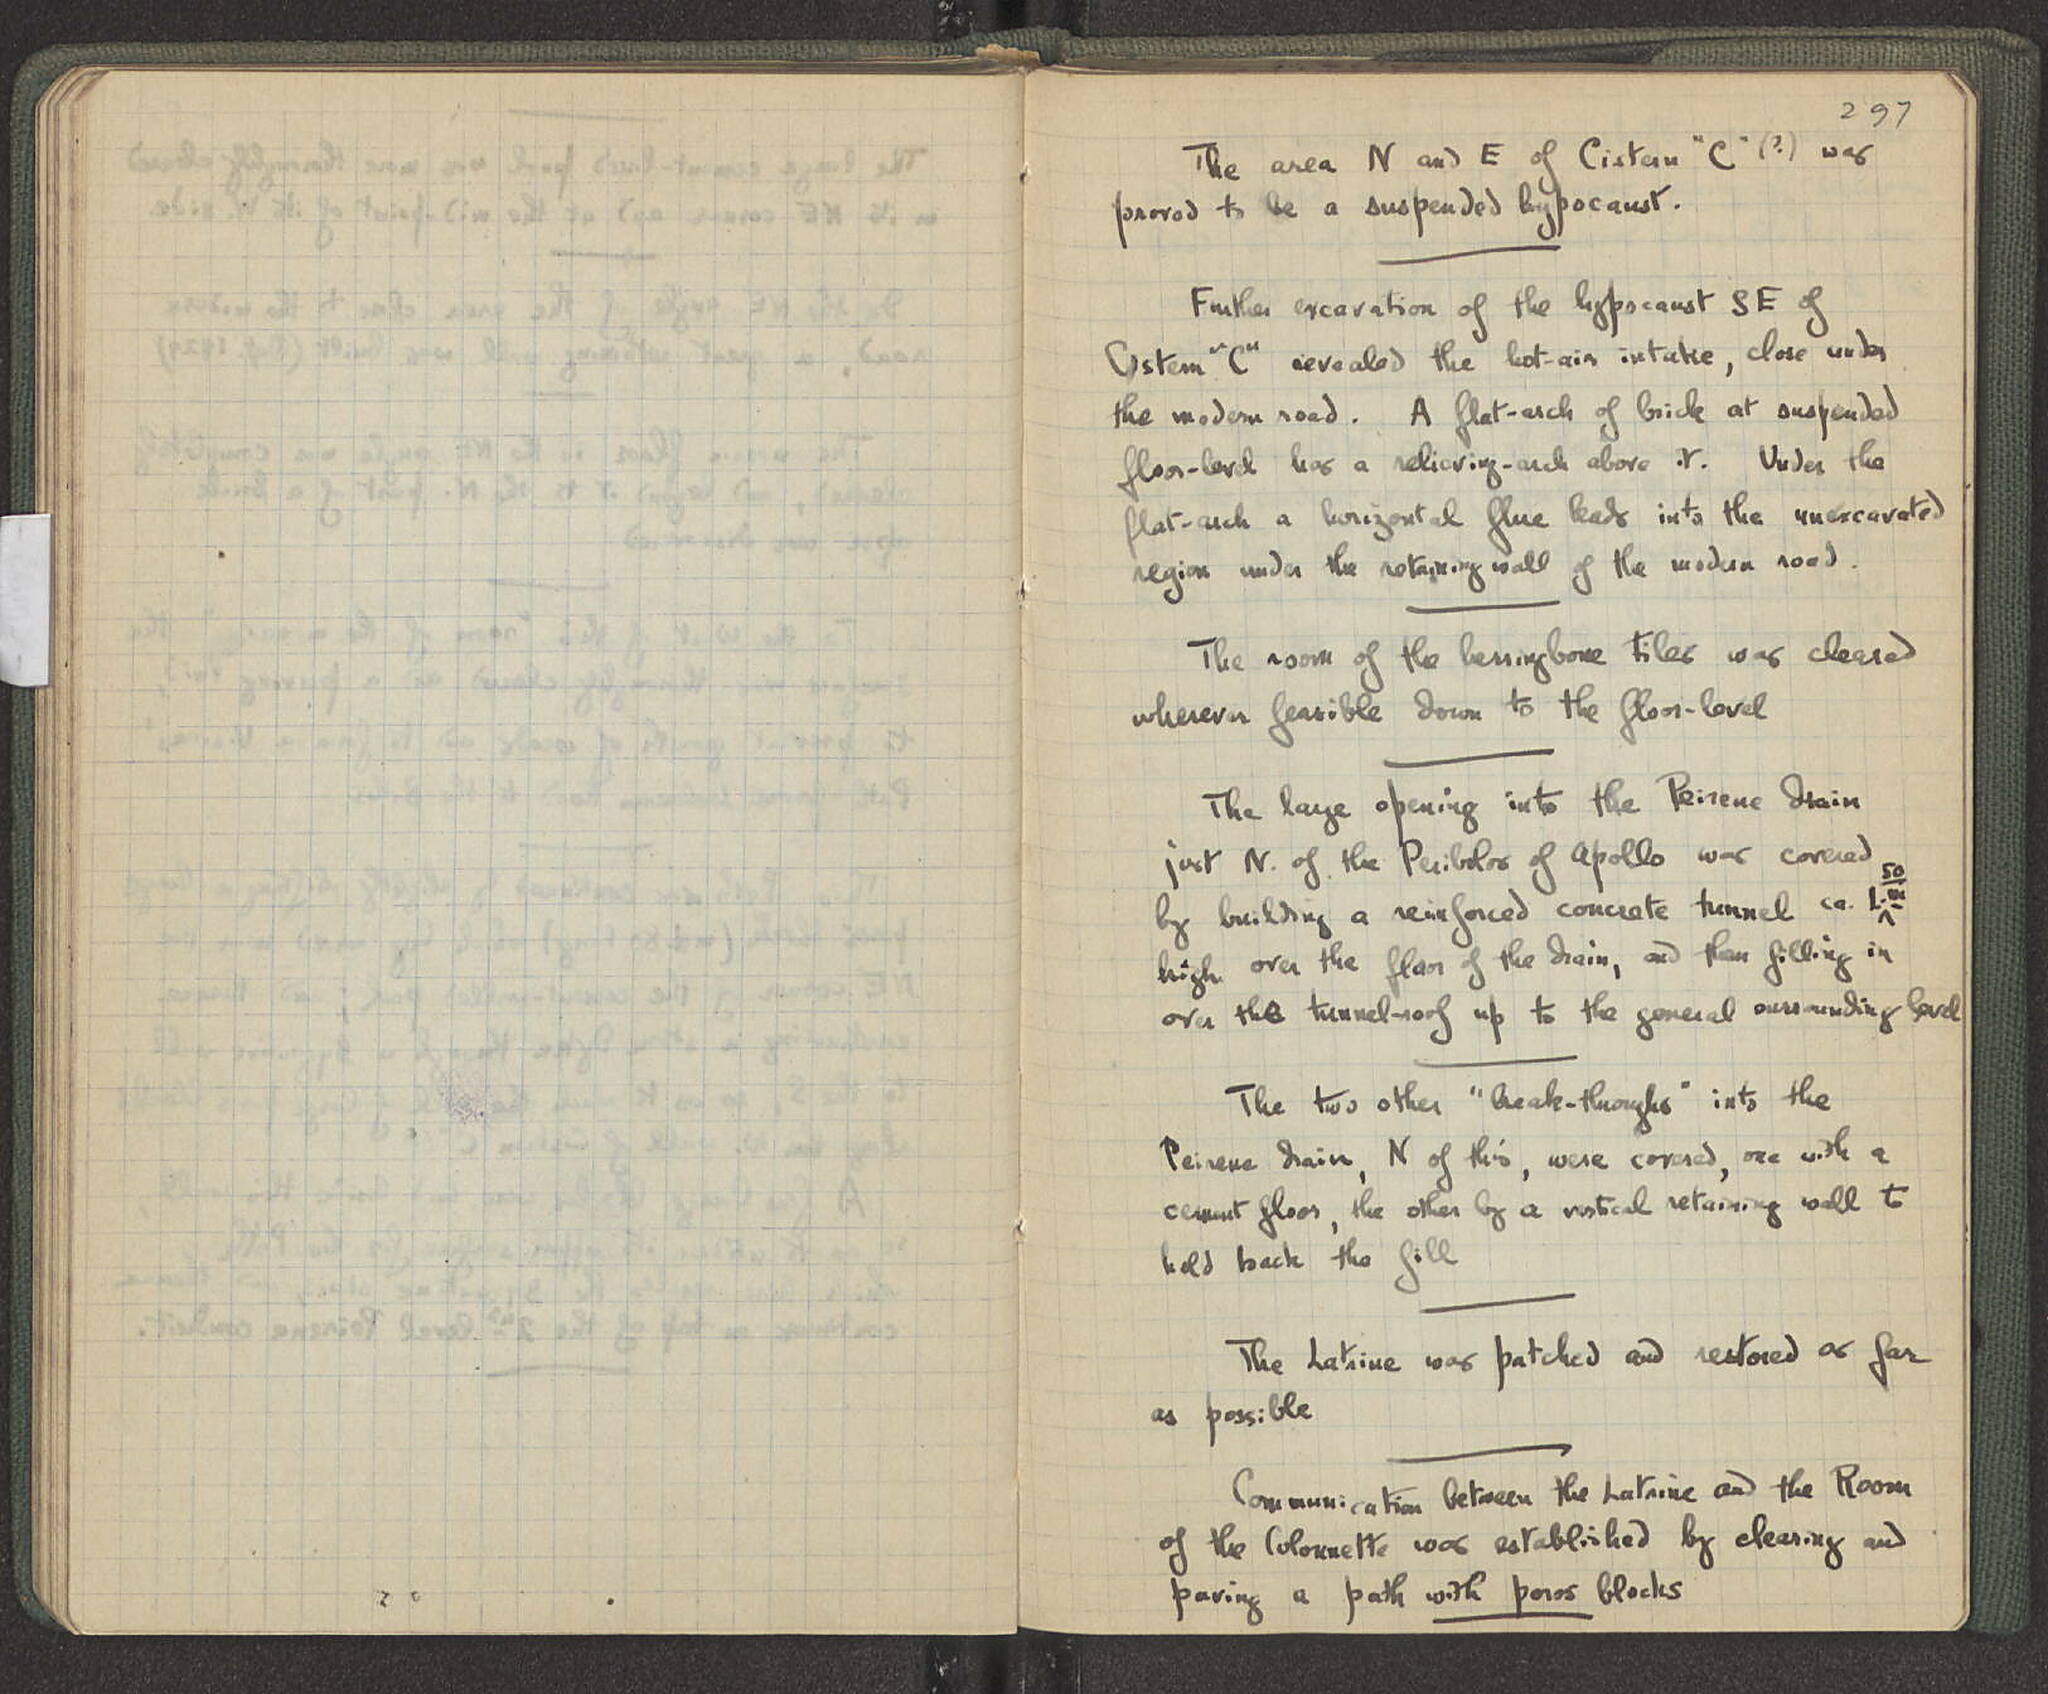 297
The area N and E of Cistern "C" (?) was
proved to be a suspended hypocaust.
Further excavation of the hypocaust SE of
Cistern "C" revealed the hot-air intake, close under
the modern road. A flat-arch of brick at suspended
floor-level has a relieving-arch above it. Under the
flat-arch a horizontal flue leads into the unexcavated
region under the retaining wall of the modern road.
The room of the herringbone tiles was cleared
wherever feasible down to the floor-level
The large opening into the Peirene drain
just N. of the Peribolos of Apollo was covered
by building a reinforced concrete tunnel ca. 1.50 m
high over the floor of the drain, and then filling in
over the tunnel-roof up to the general surrounding level
The two other "break-throughs" into the
Peirene drain, N of this, were covered, one with a
cement floor, the other by a vertical retaining wall to
hold back the fill
The Latrine was patched and restored as far
as possible
Communication between the Latrine and the Room
of the Colonnette was established by clearing and
paving a path with poros blocks